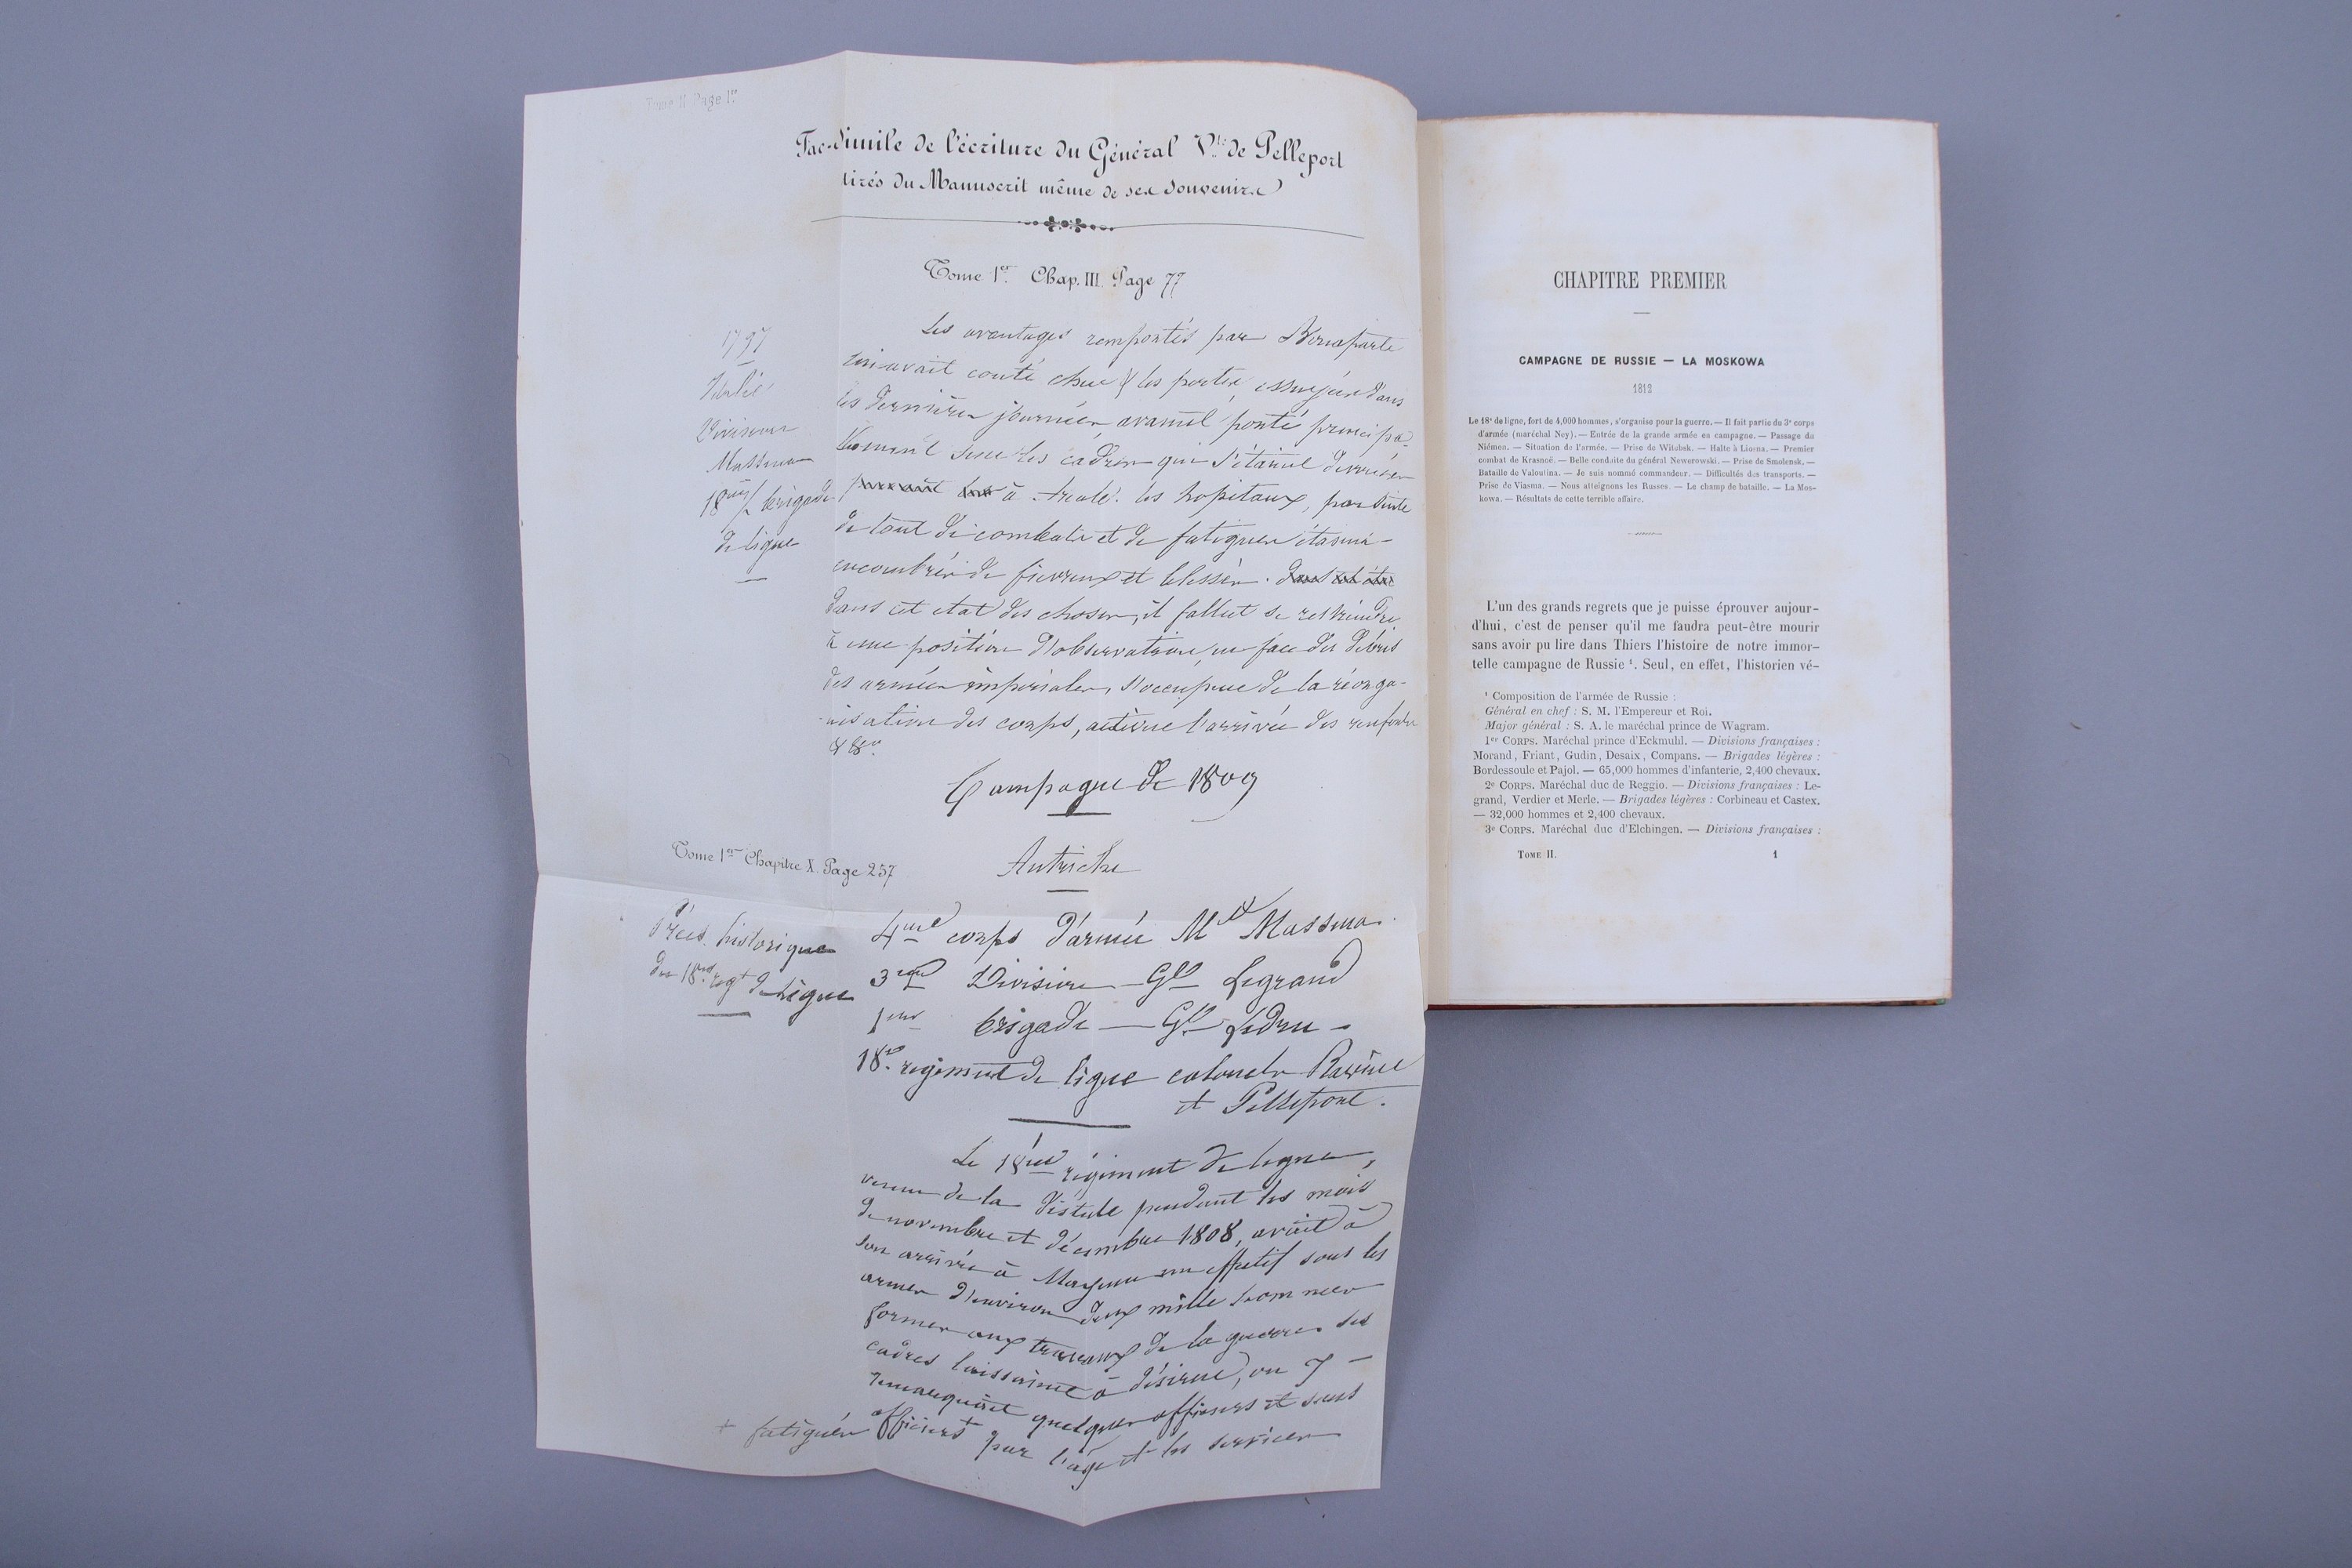 Tome II Page 1re
Fac-Simile de l'écriture du Général Vte de Pelleport
tirés du Manuscrit même de ses Souvenirs
Tome 1er Chap. III. Page 77
1797
Italie
Division
Massena
18eme ½ brigade
de ligne
Les avantages remportés par Bonaparte
avait couté cher & les pertes, essuyées dans
les dernieres journées avaient porté principa-
lement sur les cadres qui s'étaient
à . les hopitaux, par suite
de tant de combats et de fatigues étaient
encombrés de fievreux et blessés.
Dans cet etat des choses, il fallut se restreindre
à une position d'observation, en face des débris
des armées impériales, s'occuper de la réorga-
nisation des corps, activer l'arrivée des renforts
& &a.
Campagne de 1809
Tome 1er Chapitre X. Page 257
Autriche
Précis historique
du 18me regt de ligne
4me corps d'armée Mal Massena.
3me Division — Gal Legrand
1ere brigade — Gal Ledru —
18e regiment de ligne colonels Ravier
et Pelleport.
Le 18eme régiment de ligne,
venu de la Vistule pendant les mois
de novembre et décembre 1808, avait à
son arrivée à Mayence un effectif sous les
armes d'environ deux mille hommes
formés aux travaux de la guerre. ses
cadres laissaient à désirer, on y
remarquait quelques officiers et sous
officiers + par l'âge et les services
+ fatigués
CHAPITRE PREMIER
CAMPAGNE DE RUSSIE — LA MOSKOWA
1812
Le 18e de ligne, fort de 4,000 hommes, s'organise pour la guerre. — Il fait partie du 3e corps
d'armée (maréchal Ney). — Entrée de la grande armée en campagne. — Passage du
Niémen. — Situation de l'armée. — Prise de Witebsk. — Halte à Liosna. — Premier
combat de Krasnoé. — Belle conduite du général Newerowski. — Prise de Smolensk. —
Bataille de Valoutina. — Je suis nommé commandeur. — Difficultés des transports. —
Prise de Viasma. — Nous atteignons les Russes. — Le champ de bataille. — La Mos-
kowa. — Résultats de cette terrible affaire.
L'un des grands regrets que je puisse éprouver aujour-
d'hui, c'est de penser qu'il me faudra peut-être mourir
sans avoir pu lire dans Thiers l'histoire de notre immor-
telle campagne de Russie 1. Seul, en effet, l'historien vé-
1 Composition de l'armée de Russie :
Général en chef : S. M. l'Empereur et Roi.
Major général : S. A. le maréchal prince de Wagram.
1er CORPS. Maréchal prince d'Eckmuhl. — Divisions françaises :
Morand, Friant, Gudin, Desaix, Compans. — Brigades légères :
Bordessoule et Pajol. — 65,000 hommes d'infanterie, 2,400 chevaux.
2e CORPS. Maréchal duc de Reggio. — Divisions françaises : Le-
grand, Verdier et Merle. — Brigades légères : Corbineau et Castex.
— 32,000 hommes et 2,400 chevaux.
3e CORPS. Maréchal duc d'Elchingen. — Divisions françaises :
TOME II.
1